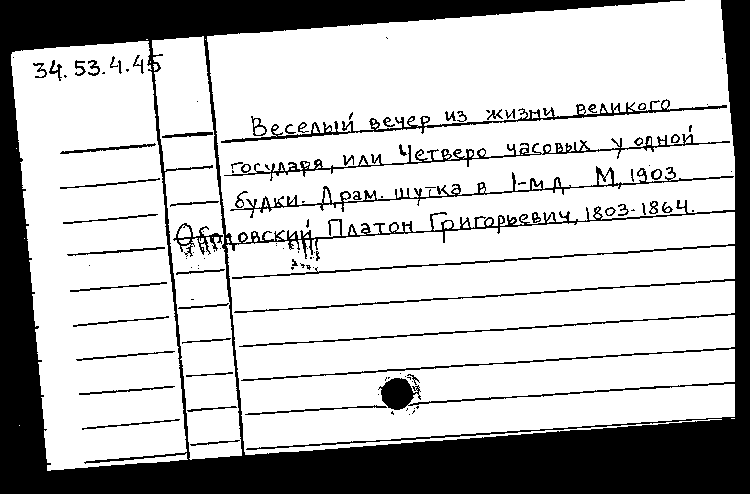 34.53.4.45
Веселый вечер из жизни великого
государя, или Четверо часовых у одной
будки. Драм. шутка в 1-м д. М, 1903
Ободовский Платон Григорьевич, 1803-1864.